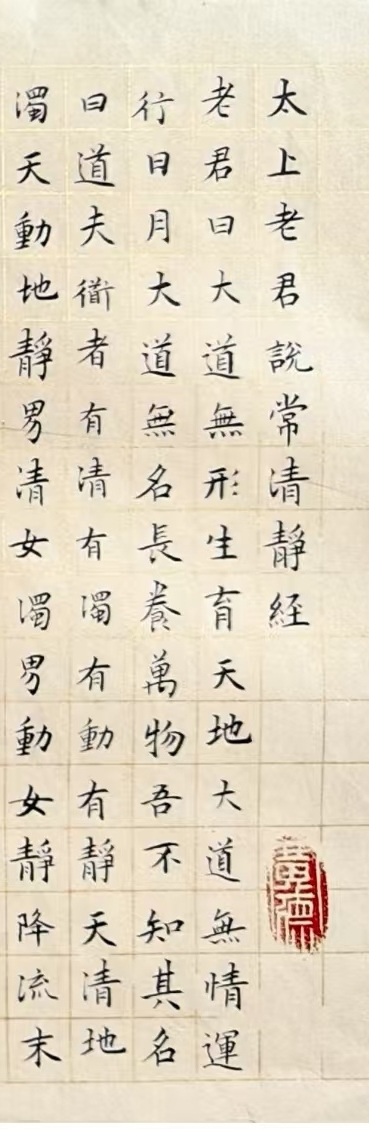 太上老君說常清靜経
老君曰大道無形生育天地大道無情運
行日月大道無名長養萬物吾不知其名
曰道夫衜者有清有濁有動有靜天清地
濁天動地靜男清女濁男動女靜降流末